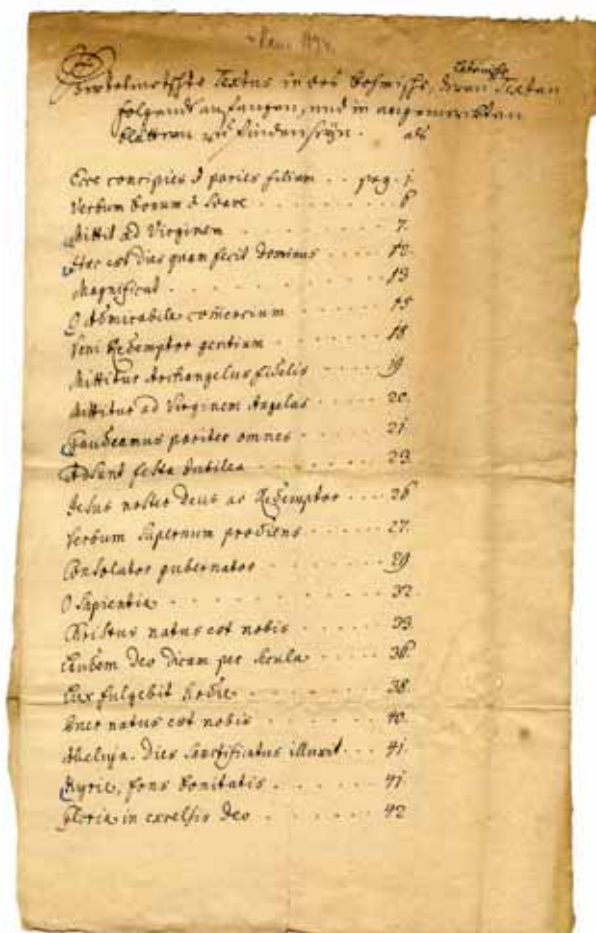 Verdolmetschte Textus in das Bohmische, deren Lateinische Texten
folgends anfangen, und in angemerckten
blättern zu finden seyn. als
Ecce concipies & paries filium . . pag. 1.
Verbum bonum & suave . . . . . 6
Mittit ad Virginem . . . . . . 7.
Hæc est dies quam fecit dominus . . . . 12.
Magnificat . . . . . . . . 13
O Admirabile comercium . . . . . 15
Veni Redemptor gentium . . . . . 18
Mittitur Archangelus fidelis . . . . 19
Mittitur ad Virginem Angelus . . . . 20.
Gaudeamus pariter omnes . . . . . 21.
Adsunt festa Iubilea . . . . . . 23.
Jesus noster Deus ac Redemptor . . . . 26
Verbum supernum prodiens . . . . . 27.
Consolator gubernator . . . . . . 29
O Sapientia . . . . . . . . 32
Christus natus est nobis . . . . . 33.
Laudem Deo dicam per secula . . . . . 36.
Lux fulgebit hodie . . . . . . 38.
Puer natus est nobis . . . . . . 40.
Alleluja. Dies sanctificatus illuxit . . . 41.
Kyrie, fons bonitatis . . . . . . 41
Gloria in excelsis Deo . . . . . . 42